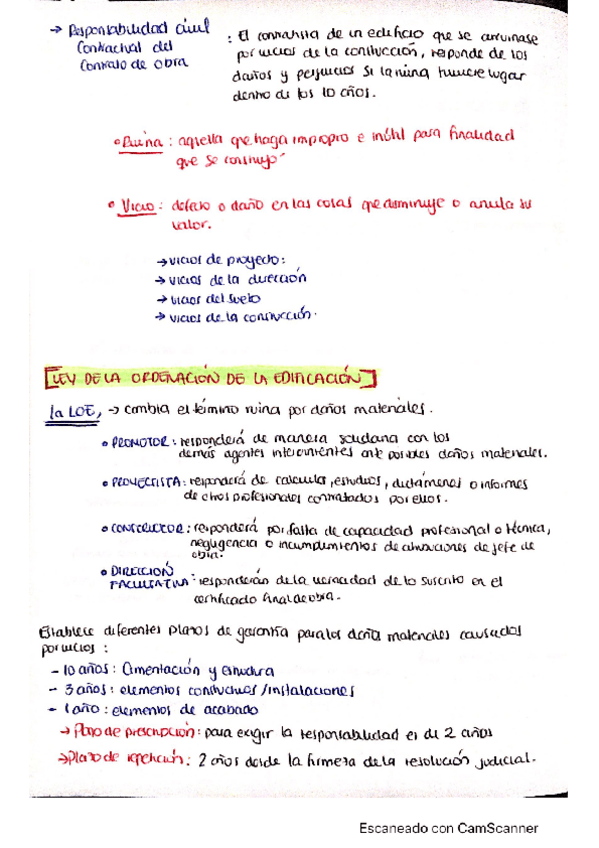 → Responsabilidad civil
Contractual del
Contrato de obra
: El contratista de un edificio que se arruinase
por vicios de la construcción, responde de los
daños y perjuicios si la ruina tuviere lugar
dentro de los 10 años.
• Ruina : aquella que haga impropio e inútil para finalidad
que se construyó
• Vicio : defecto o daño en las cosas que disminuye o anula su
valor.
→ vicios de proyecto:
→ vicios de la dirección
→ vicios del suelo
→ vicios de la construcción.
[LEY DE LA ORDENACIÓN DE LA EDIFICACIÓN]
la LOE, → cambia el término ruina por daños materiales.
• PROMOTOR : responderá de manera solidaria con los
demás agentes intervinientes ante posibles daños materiales.
• PROYECTISTA : responderá de calculo, estudios, dictámenes o informes
de otros profesionales contratados por ellos.
• CONSTRUCTOR : responderá por falta de capacidad profesional o técnica,
negligencia o incumplimientos de atribuciones de jefe de
obra.
• DIRECCIÓN
FACULTATIVA : responderán de la veracidad de lo suscrito en el
certificado final de obra.
Establece diferentes plazos de garantía para los daños materiales causados
por vicios :
- 10 años : Cimentación y estructura
- 3 años : elementos constructivos / instalaciones
- 1 año : elementos de acabado
→ Plazo de prescripción : para exigir la responsabilidad es de 2 años
→ Plazo de repetición : 2 años desde la firmeza de la resolución judicial.
Escaneado con CamScanner